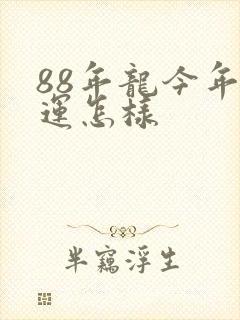 88年龍今年
運怎樣
半竊浮生